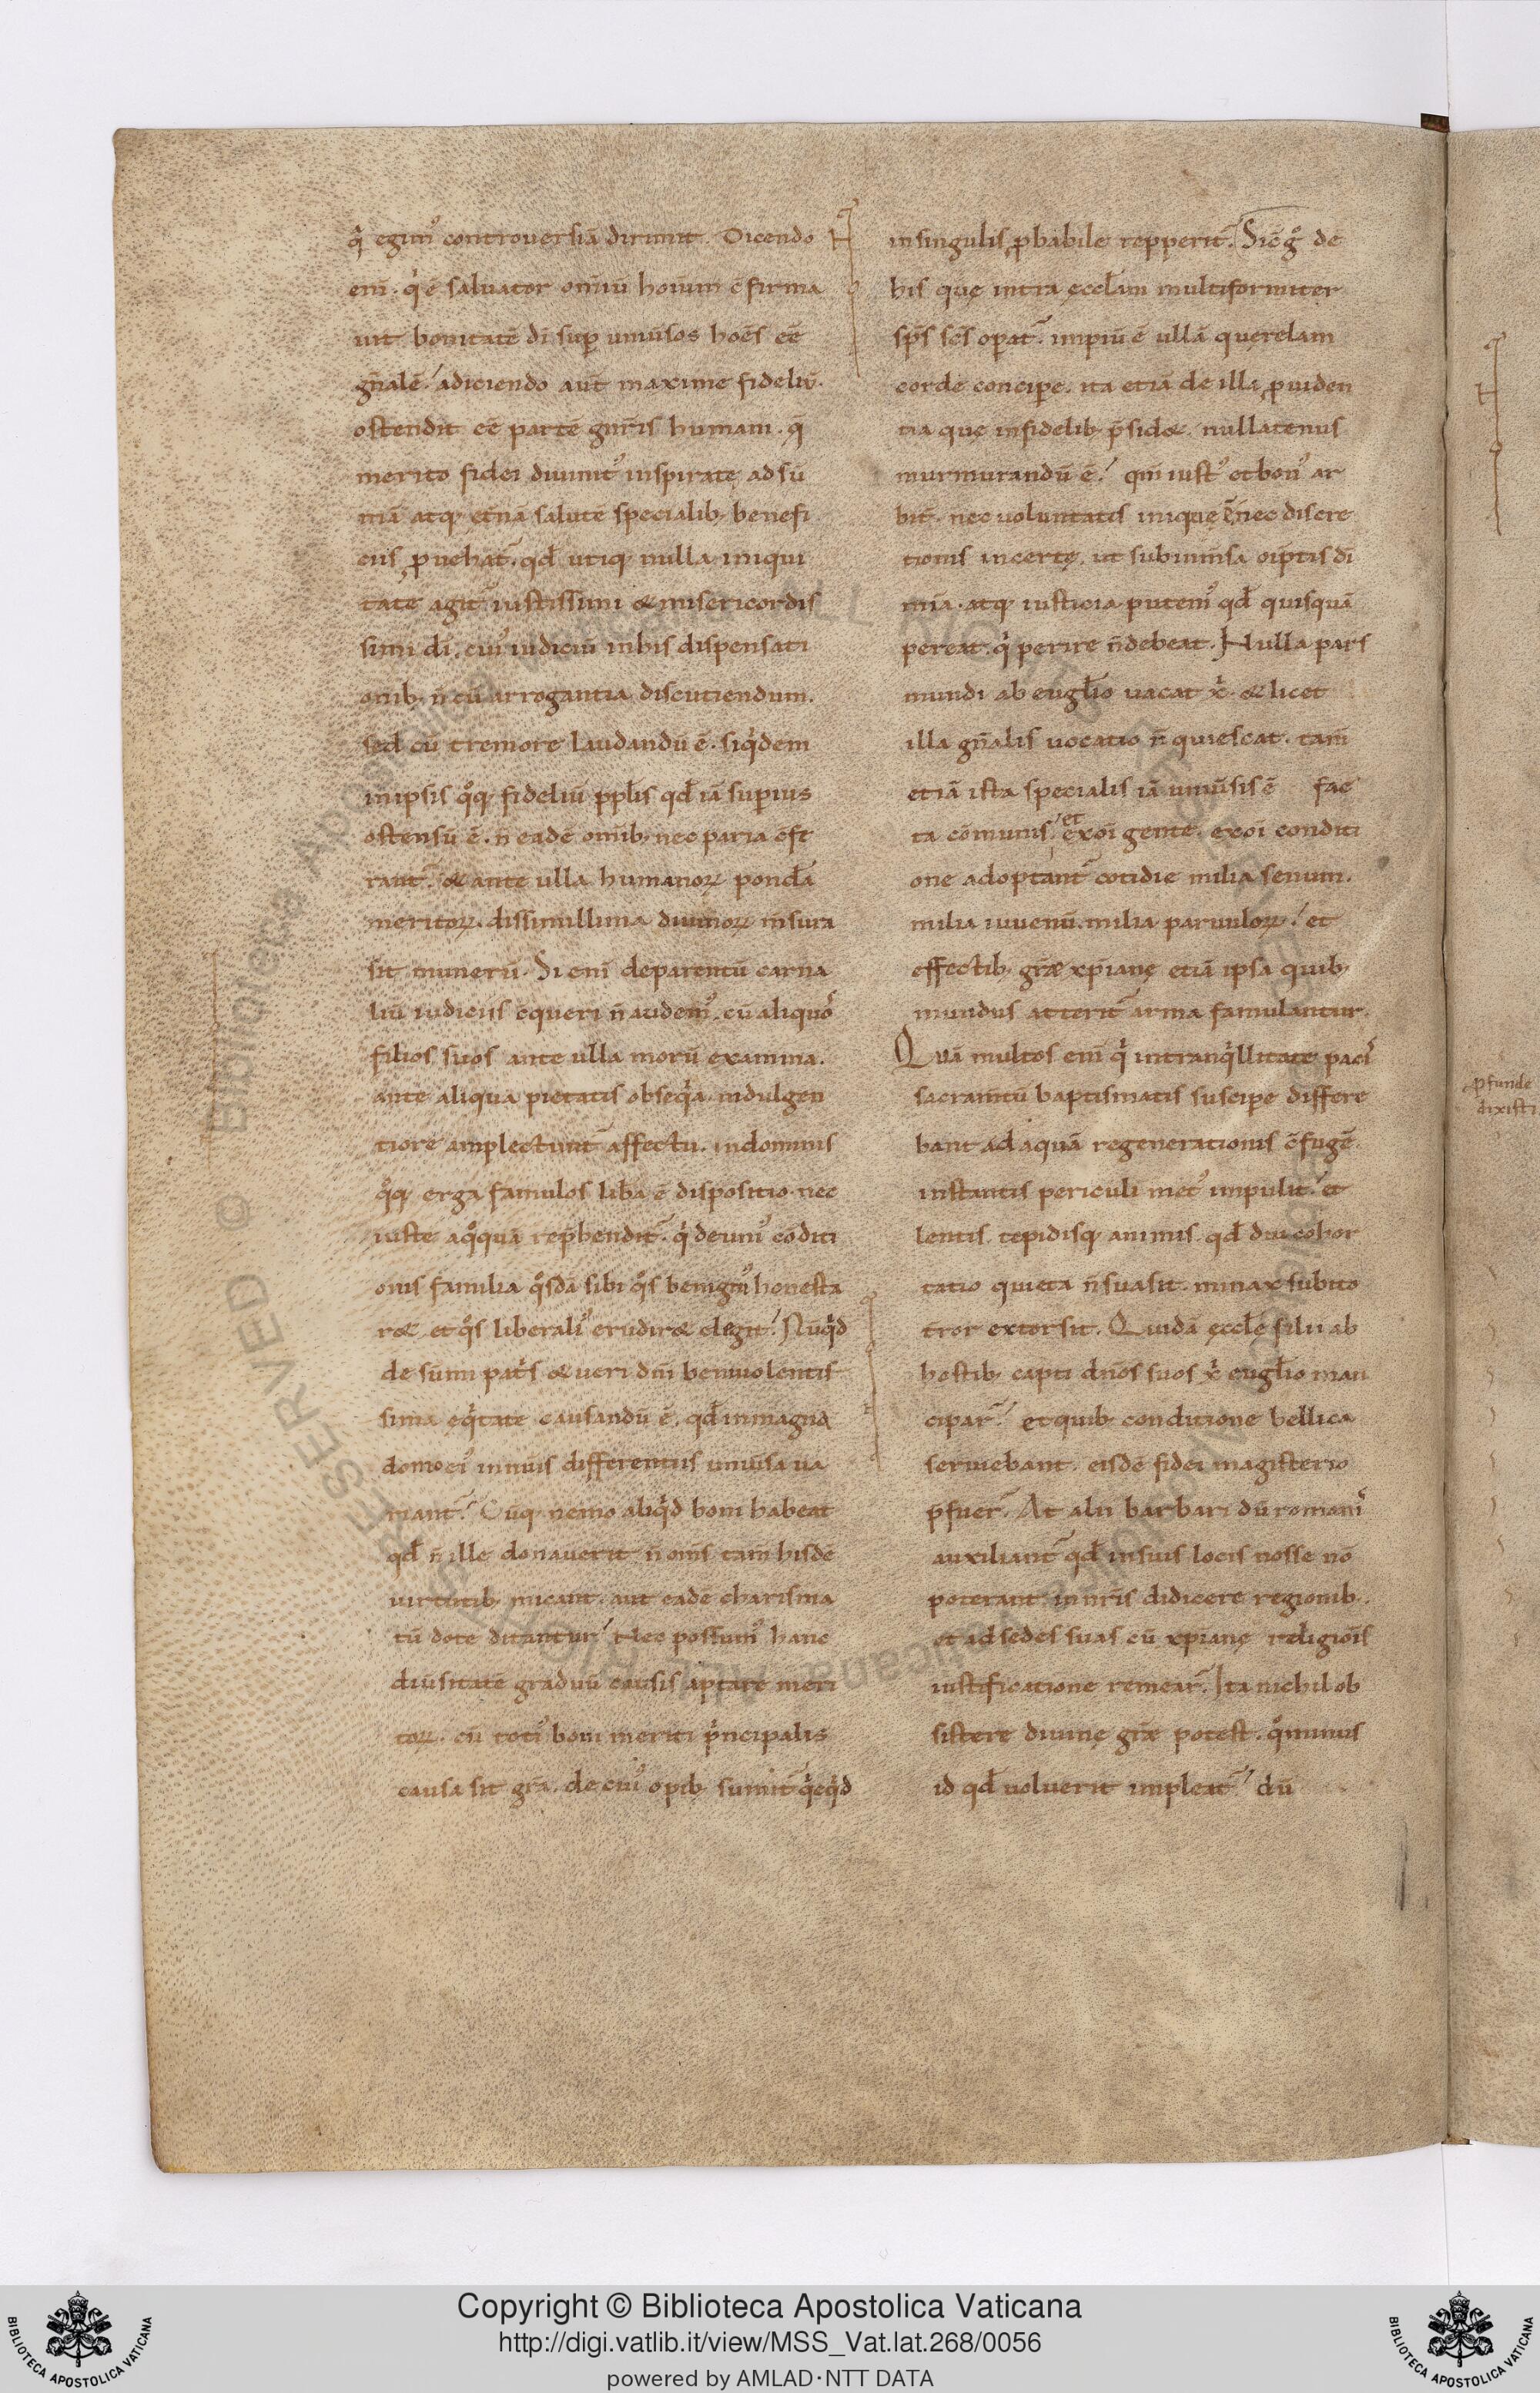 q̇ egim᷒ controuersiā dirimit. Dicendo
eni̅. q̇ ē saluator omiū hoium ꝯfirma
uit bonitatē di̅ sup̱ uniu̅sos hoe̅s ee̅
gn̅alē. adiciendo aut̅ maxime fideliū.
ostendit ee̅ partē gn̅ris humani. q̅
merito fidei diuinit᷒ inspiratę ad sū
mā atq; et̅nā salutē specialib; benefi
ciis ꝓuehat̃. qd̅ utiq; nulla iniqui
tate agit̃ iustissimi & misericordis
simi di̅. cui᷒ iudiciū in his dispensati
onib; n̅ cū arrogantia discutiendum.
sed cū tremore laudandū ē. siq̇dem
in ipsis q°q; fideliū pp̅lis qd̅ iā sup̱ius
ostensū ē. n̅ eadē omib; nec paria ꝯfe
runt̃. & ante ulla humanoꝝ pond̅a
meritoꝝ. dissimillima diuinoꝝ m̅sura
sit munerū. Si eni̅ de parentū carna
liū iudiciis ꝯqueri n̅ audem᷒. cū aliquo᷒
filios suos ante ulla morū examina.
ante aliqua pietatis obseq̇a. indulgen
tiore amplectunt̃ affectu. in dominis
q°q; erga famulos lib̅a ē dispositio. nec
iuste a q°quā rep̅hendit̃. q̇ de uni᷒ cōditi
onis familia q°sdā sibi q°s benigni᷒ honesta
r& et q°s liberali᷒ erudir& elegit. Nūq̇d
de sūmi pat̅s & ueri dn̅i beniuolentis
sima eq̇tate causandū ē. qd̅ in magna
domo ei᷒ innu̅is differentiis uniu̅sa ua
riant̃. Cūq; nemo aliq̇d boni habeat
qd̅ n̅ ille donauerit n̅ om̅s tam̅ hisdē
uirtutib; micant. aut eadē charisma
tū dote ditantur. Nec possum᷒ hanc
diu̅sitatē graduū causis aptare meri
toꝝ. cū toti᷒ boni meriti p̅ncipalis
causa sit gra̅. de cui᷒ opib; sumit̃ q̇cq̇d
in singulis ꝓbabile repperit̃. Sic g° de
his quę intra ęccl̅im multiformiter
sps̅ scs̅ op̱at̃. impiū ē ullā querelam
corde concip̱e. ita etiā de illa ꝓuiden
tia quę infidelib; p̅sid&. nullatenus
murmurandū ē. qm̅ iust᷒ et bon᷒ ar
bit̅. nec uoluntatis iniquę ē nec discre
tionis incertę. ut sub in̅msa oip̅tis di̅
mi̅a. atq; iusticia putem᷒ qd̅ quisquā
pereat. q̇ perire n̅ debeat. Nulla pars
mundi ab eugl̅io uacat x̅. & licet
illa gn̅alis uocatio n̅ quiescat. tam̅
etiā ista specialis iā uniu̅sis ē fac
ta cōmunis. et ex oi̅ gente. ex oi̅ conditi
one adoptant̃ cotidie milia senum.
milia iuuenū. milia paruuloꝝ. et
effectib; gr̅æ xp̅ianę etiā ipsa quib;
mundus atterit̃ arma famulantur.
Quā multos eni̅ q̇ in tranq̇llitate paci᷒
sacram̅tū baptismatis suscip̱e differe
bant ad aquā regenerationis ꝯfugē
instantis periculi met᷒ impulit. et
lentis tepidisq; animis. qd̅ diu cohor
tatio quieta n̅ suasit. minax subito
t̅ror extorsit. Quidā ęccl̅e filii ab
hostib; capti dn̅os suos x̅ eugl̅io man
cipar̃. et quib; conditione bellica
seruiebant. eisdē fidei magisterio
p̅fuer̃. At alii barbari dū romani᷒
auxiliant̃ qd̅ in suis locis nosse nō
poterant. in nr̅is didicere regionib;.
et ad sedes suas cū xp̅ianę religiois̅
iustificatione remear̃. Ita nichil ob
sistere diuinę gr̅æ potest. q°minus
id qd̅ uoluerit impleat̃. dū
ꝓfunde
dixisti
Copyright © Biblioteca Apostolica Vaticana
http://digi.vatlib.it/view/MSS_Vat.lat.268/0056
powered by AMLAD·NTT DATA
BIBLIOTECA APOSTOLICA VATICANA
BIBLIOTECA APOSTOLICA VATICANA